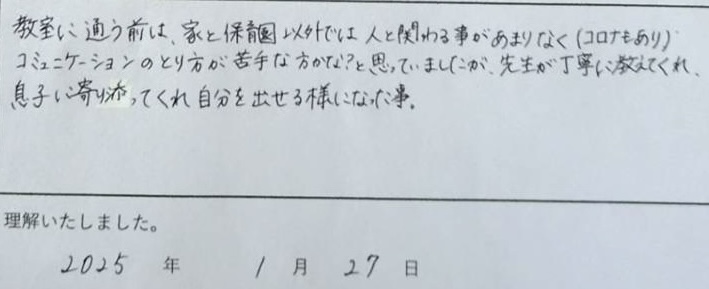 教室に通う前は、家と保育園以外では人と関わる事があまりなく(コロナもあり)
コミュニケーションのとり方が苦手な方かな?と思っていましたが、先生が丁寧に教えてくれ、
息子に寄り添ってくれ自分を出せる様になった事。
理解いたしました。
2025 年 1 月 27 日